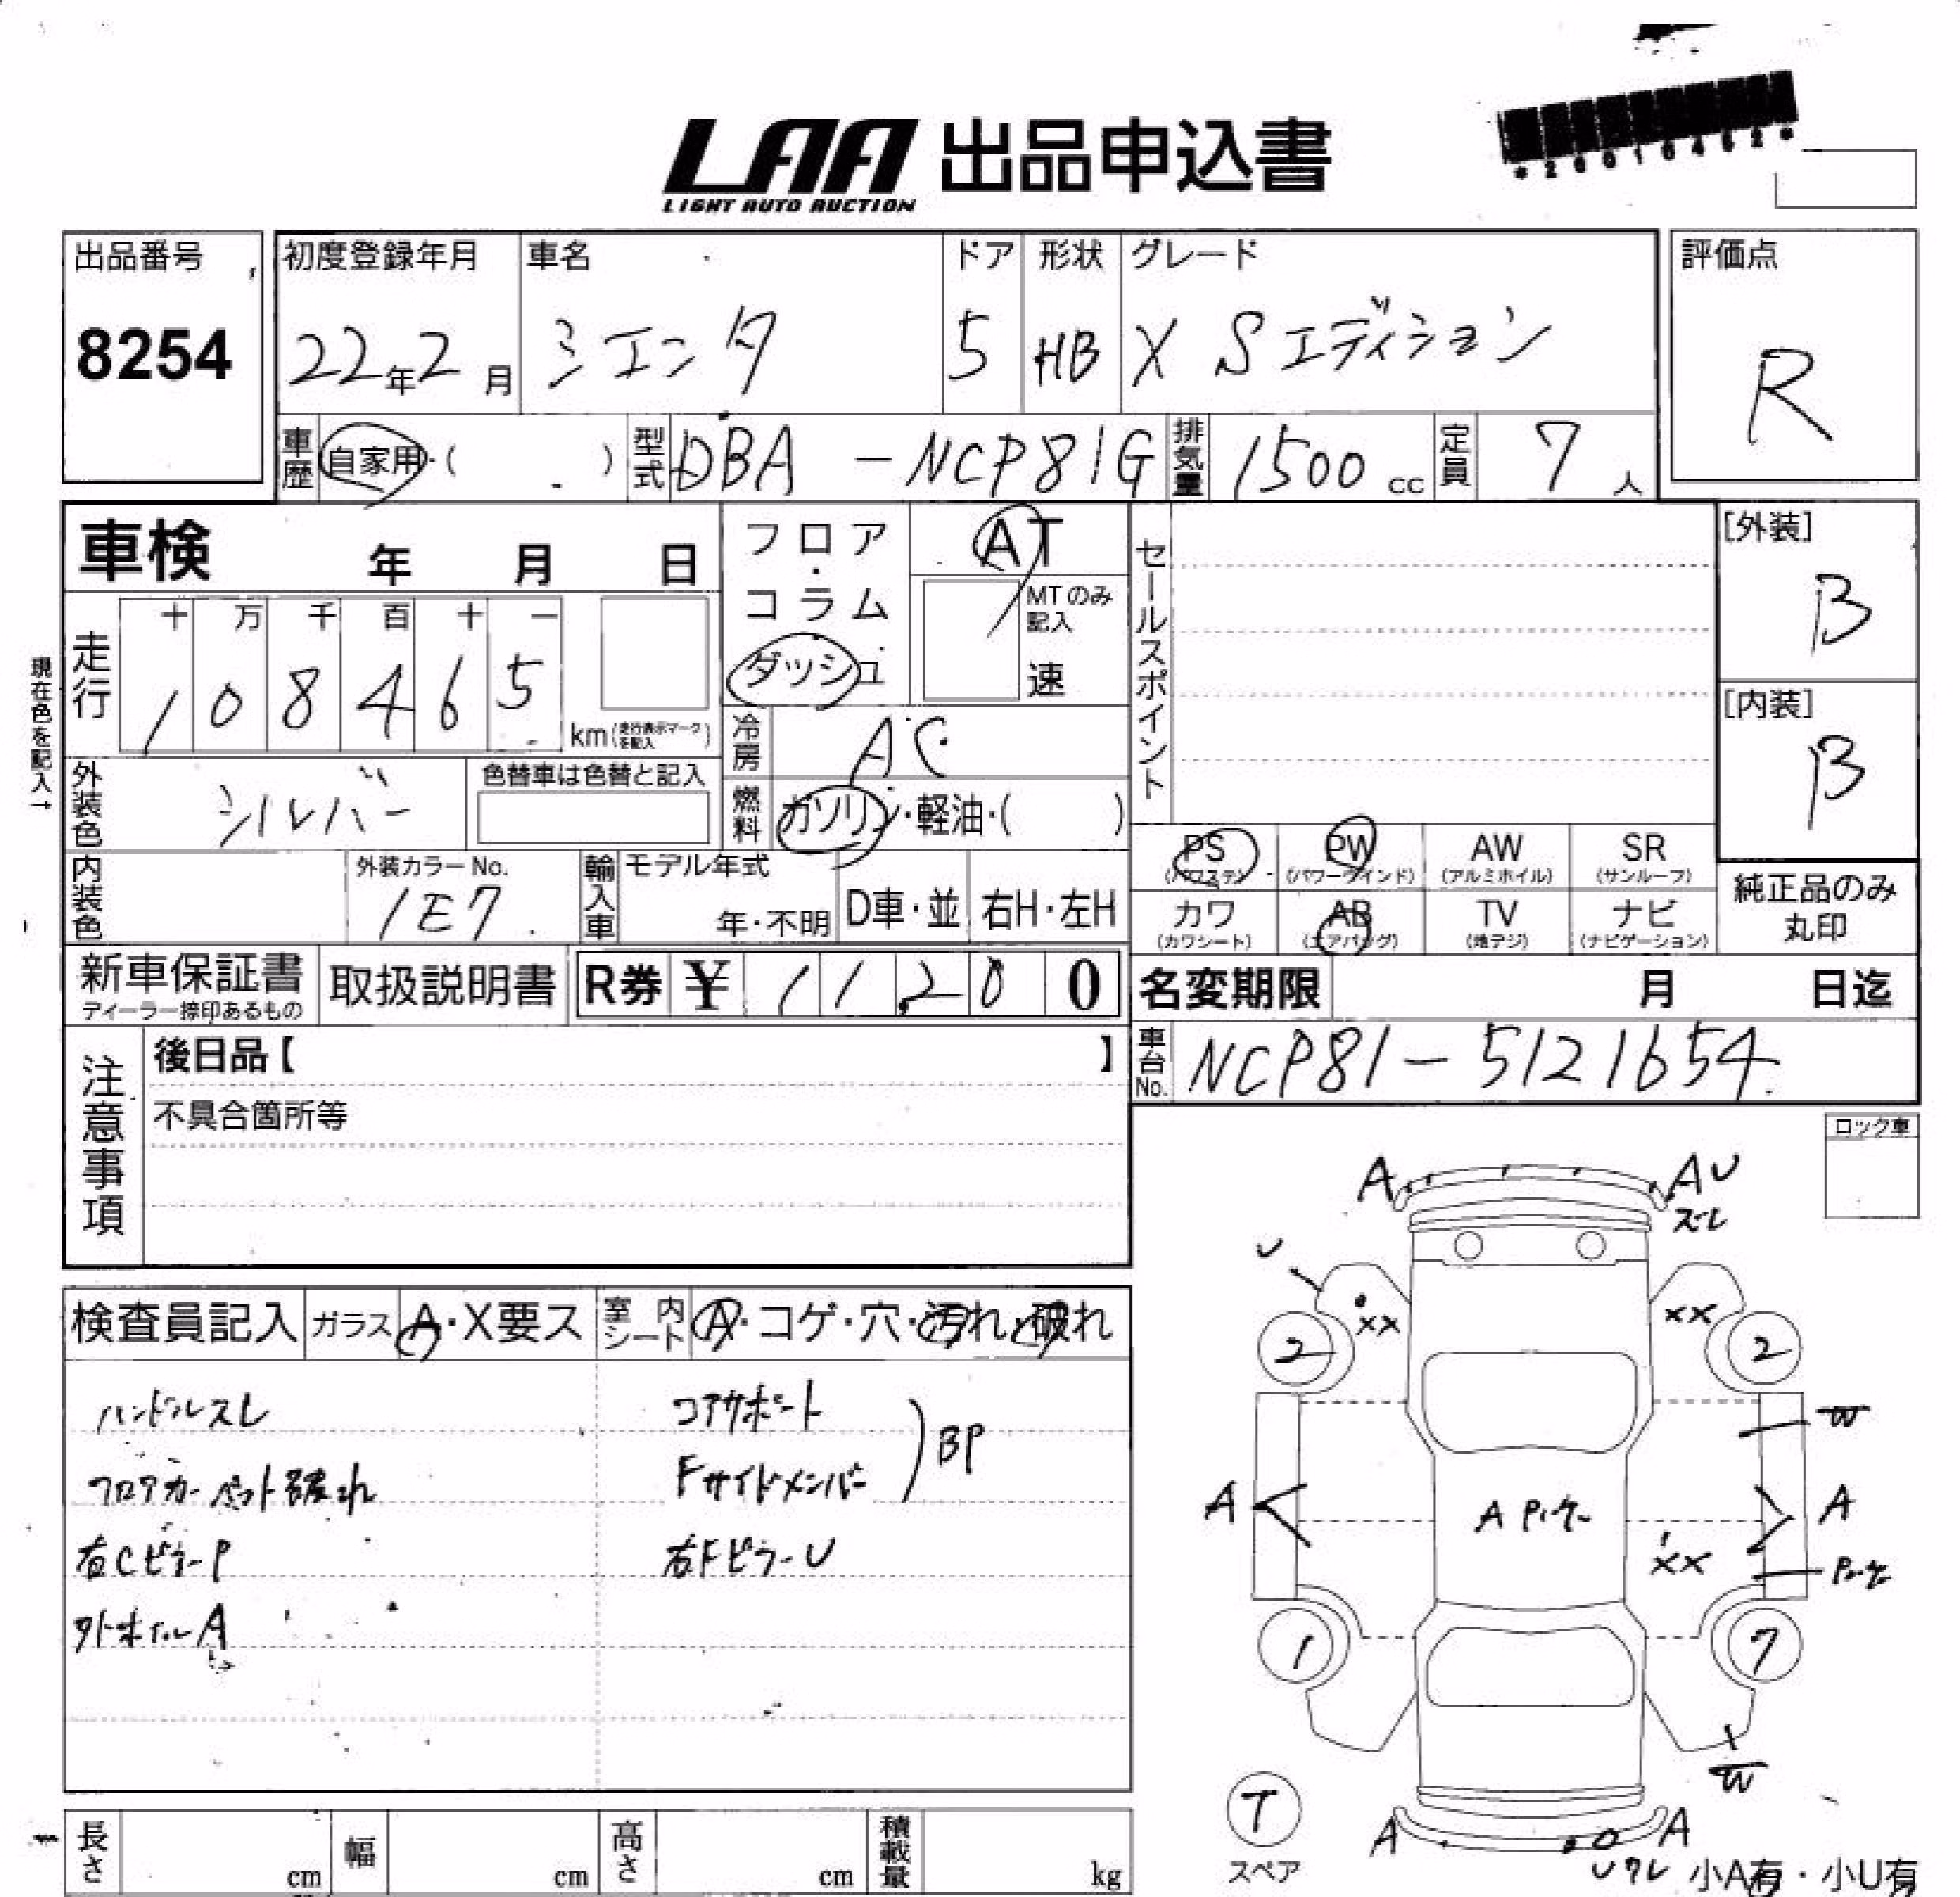 LAA 出品申込書
LIGHT AUTO AUCTION
*20010452*
出品番号
8254
初度登録年月
22年2月
車名
シエンタ
ドア
5
形状
HB
グレード
X Sエディション
評価点
R
車歴 自家用・( )
型式 DBA-NCP81G
排気量 1500 cc
定員 7人
車検 年 月 日
フロア・コラム・ダッシュ
AT
MTのみ記入
速
セールスポイント
[外装]
B
[内装]
B
現在色を記入→
走行
十 万 千 百 十 一
1 0 8 4 6 5
km(走行表示マークを記入)
冷房 AC
燃料 ガソリン・軽油・( )
外装色 シルバー
色替車は色替と記入
内装色
外装カラーNo.
1E7
輸入車
モデル年式
年・不明
D車・並
右H・左H
PS (パワステ)
PW (パワーウィンド)
AW (アルミホイル)
SR (サンルーフ)
カワ (カワシート)
AB (エアバッグ)
TV (地デジ)
ナビ (ナビゲーション)
純正品のみ丸印
新車保証書
ディーラー捺印あるもの
取扱説明書
R券 ¥ 11200
名変期限 月 日迄
車台No. NCP81-5121654
注意事項
後日品【 】
不具合箇所等
ロック車
検査員記入
ガラス A・X要ス
室内シート A・コゲ・穴・汚れ・破れ
ハンドルスレ
フロアカーペット破れ
右CピラーP
タホイルA
コアサポート
Fサイドメンバー
BP
右FピラーU
A
AU
ズレ
U
XX
XX
2
2
W
A
A Pハゲ
A
XX
Pハゲ
1
7
W
T
スペア
A
A
Uワレ
小A有・小U有
長さ cm
幅 cm
高さ cm
積載量 kg